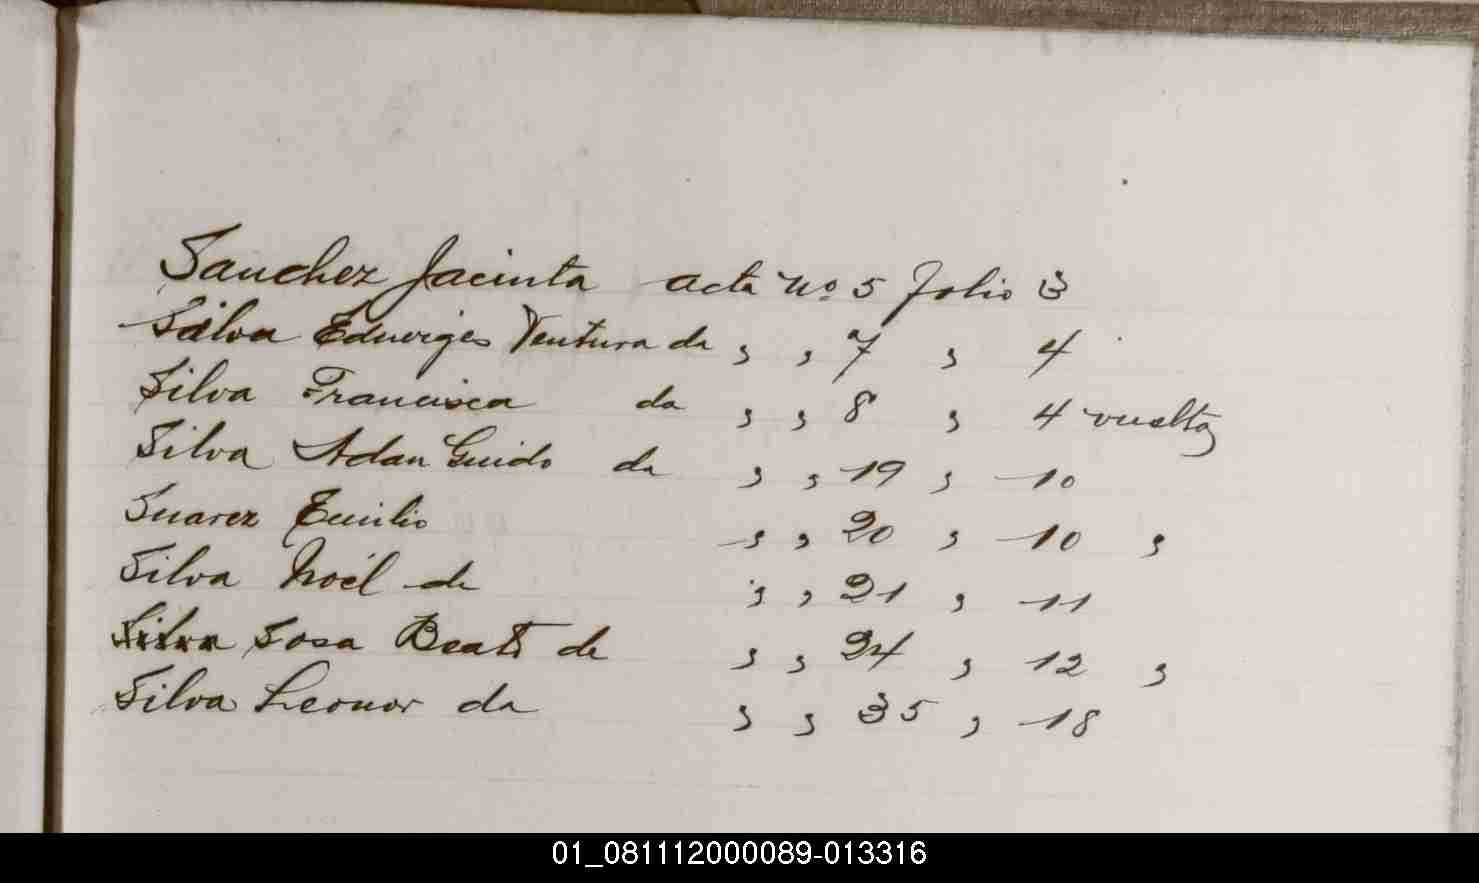 Sanchez Jacinta acta No. 5 folio 3
Silva Eduviges Ventura da , , 7 , 4
Silva Francisca da , , 8 , 4 vuelta
Silva Adan Guido da , , 19 , 10
Suarez Emilio , , 20 , 10 ,
Silva Noél de , , 21 , 11
Silva Sosa Beatr de , , 24 , 12 ,
Silva Leonor da , , 35 , 18
01_081112000089-013316